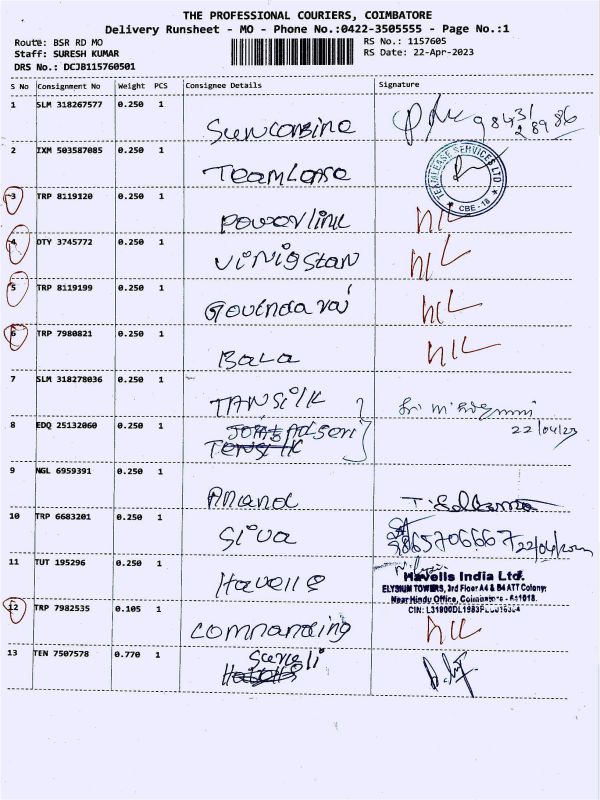 THE PROFESSIONAL COURIERS, COIMBATORE
Delivery Runsheet - MO - Phone No.:0422-3505555 - Page No.:1
Route: BSR RD MO
Staff: SURESH KUMAR
DRS No.: DCJB115760501
RS No.: 1157605
RS Date: 22-Apr-2023
S No Consignment No Weight PCS Consignee Details Signature
1 SLM 318267577 0.250 1 Suncombine
98431 28986
2 IXM 503587085 0.250 1 TeamLease
TEAMLEASE SERVICES LTD. CBE - 18
3 TRP 8119120 0.250 1 Powerlink NIL
4 DTY 3745772 0.250 1 Vinigstan NIL
5 TRP 8119199 0.250 1 Govindaraj NIL
6 TRP 7980821 0.250 1 Bala NIL
7 SLM 318278036 0.250 1 TANSilK
22/04/23
8 EDQ 25132060 0.250 1
9 NGL 6959391 0.250 1 Anand
10 TRP 6683201 0.250 1 Siva
9865706667 22/04/2023
11 TUT 195296 0.250 1 Havells
Havells India Ltd.
ELYSIUM TOWERS, 3rd Floor A4 & B4 ATT Colony,
Near Hindu Office, Coimbatore - 641018.
12 TRP 7982535 0.105 1 Commanding NIL
13 TEN 7507578 0.770 1